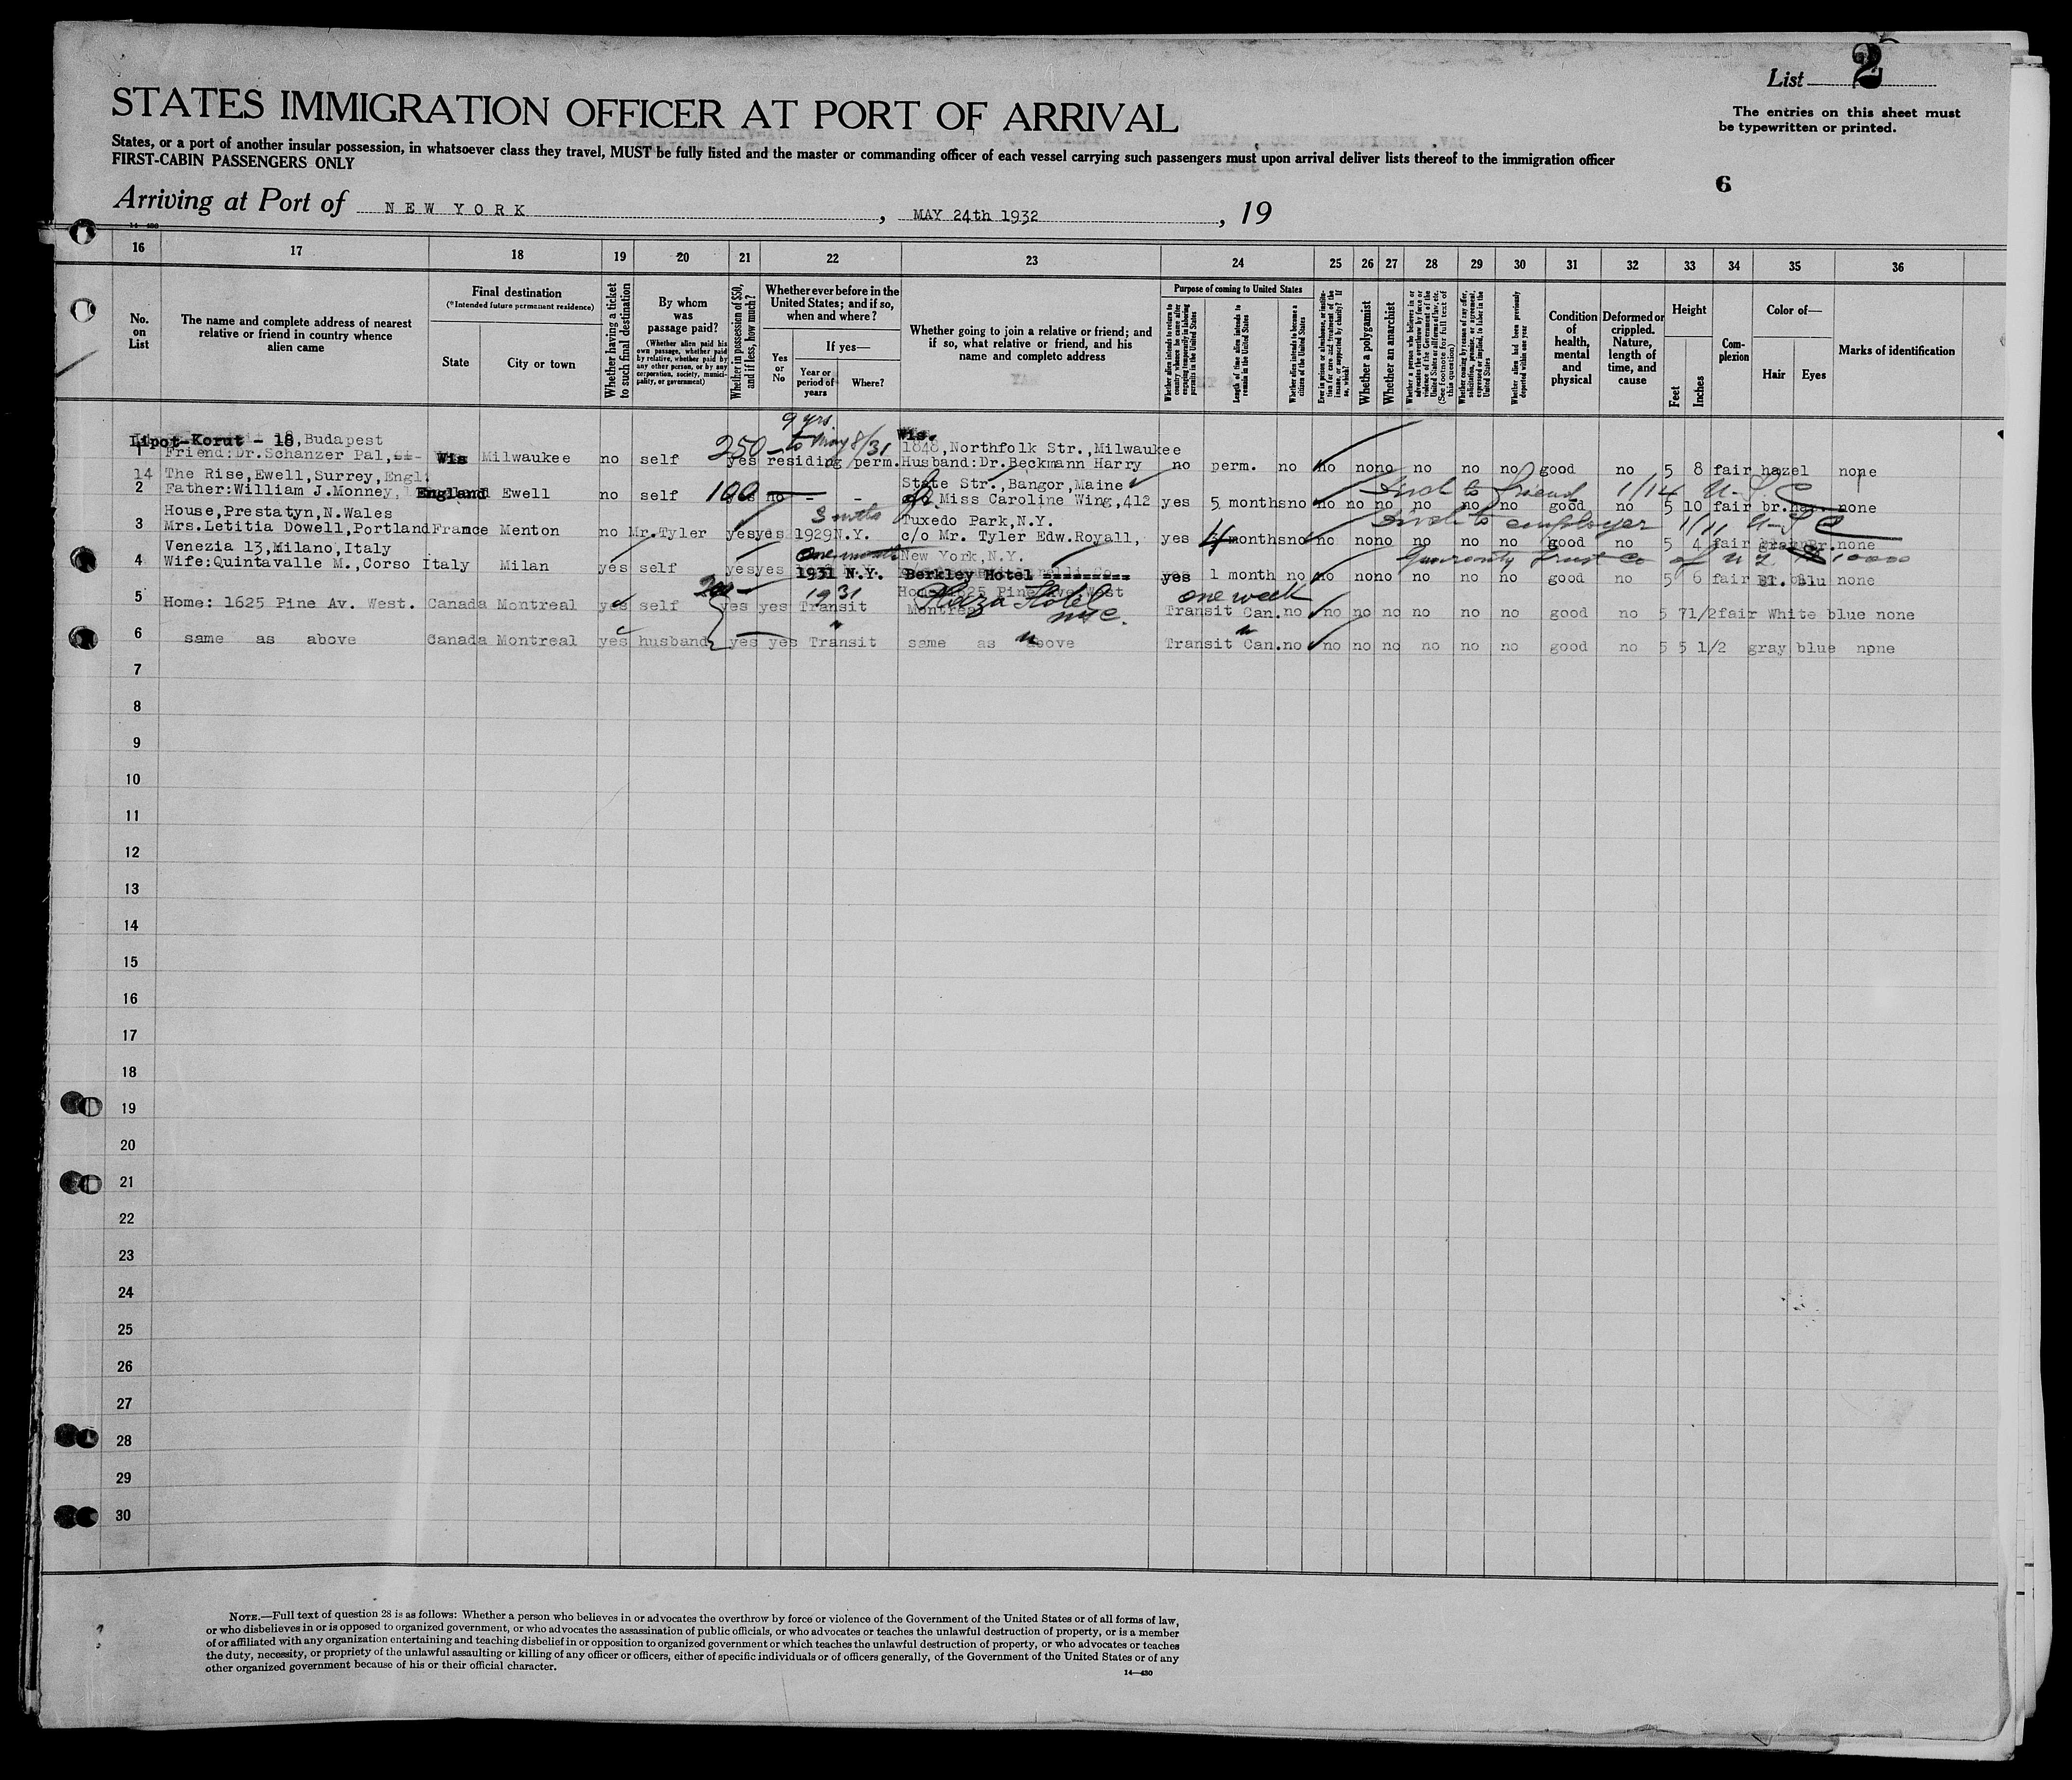 List 2
STATES IMMIGRATION OFFICER AT PORT OF ARRIVAL
The entries on this sheet must
be typewritten or printed.
States, or a port of another insular possession, in whatsoever class they travel, MUST be fully listed and the master or commanding officer of each vessel carrying such passengers must upon arrival deliver lists thereof to the immigration officer
FIRST-CABIN PASSENGERS ONLY
6
Arriving at Port of NEW YORK, MAY 24th 1932, 19
14—430
16 17 18 19 20 21 22 23 24 25 26 27 28 29 30 31 32 33 34 35 36
No. on List
The name and complete address of nearest relative or friend in country whence alien came
Final destination
(*Intended future permanent residence)
State
City or town
Whether having a ticket to such final destination
By whom was passage paid?
(Whether alien paid his own passage, whether paid by relative, whether paid by any other person, or by any corporation, society, municipality, or government)
Whether in possession of $50, and if less, how much?
Whether ever before in the United States; and if so, when and where?
Yes or No
If yes—
Year or period of years
Where?
Whether going to join a relative or friend; and if so, what relative or friend, and his name and complete address
Purpose of coming to United States
Whether alien intends to return to country whence he came after engaging temporarily in laboring pursuits in the United States
Length of time alien intends to remain in the United States
Whether alien intends to become a citizen of the United States
Ever in prison or almshouse, or institution for care and treatment of the insane, or supported by charity? If so, which?
Whether a polygamist
Whether an anarchist
Whether a person who believes in or advocates the overthrow by force or violence of the Government of the United States or all forms of law, etc. (See footnote for full text of this question)
Whether coming by reason of any offer, solicitation, promise, or agreement, expressed or implied, to labor in the United States
Whether alien had been previously deported within one year
Condition of health, mental and physical
Deformed or crippled. Nature, length of time, and cause
Height
Feet
Inches
Complexion
Color of—
Hair
Eyes
Marks of identification
9 yrs.
Lipot-Korut - 18, Budapest 250 to May 8/31 Wis. 1848, Northfolk Str., Milwaukee
1 Friend: Dr. Schanzer Pal, Wis Milwaukee no self yes residing perm. Husband: Dr. Beckmann Harry no perm. no no no no no no no good no 5 8 fair hazel none
14 The Rise, Ewell, Surrey, Engl. State Str., Bangor, Maine friend 1/14 U.S.C
2 Father: William J. Monney, England Ewell no self 100 yes no - - Miss Caroline Wing, 412 yes 5 months no no no no no no no good no 5 10 fair br. none
House, Prestatyn, N. Wales 3 mths Tuxedo Park, N.Y. to employer 1/11 U-S C
3 Mrs. Letitia Dowell, Portland France Menton no Mr. Tyler yes yes 1929 N.Y. c/o Mr. Tyler Edw. Royall, yes 4 months no no no no no no no good no 5 4 fair none
Venezia 13, Milano, Italy one month New York, N.Y. Guaranty Trust Co of N Y 10000
4 Wife: Quintavalle M., Corso Italy Milan yes self yes yes 1931 N.Y. Berkley Hotel yes 1 month no no no no no no no good no 5 6 fair none
200 1931 Plaza Hotel NYC. one week
5 Home: 1625 Pine Av. West. Canada Montreal yes self yes yes Transit Montreal Transit Can. no no no no no no no good no 5 7 1/2 fair White blue none
6 same as above Canada Montreal yes husband yes yes Transit same as above Transit Can. no no no no no no no good no 5 5 1/2 gray blue none
7
8
9
10
11
12
13
14
15
16
17
18
19
20
21
22
23
24
25
26
27
28
29
30
NOTE.—Full text of question 28 is as follows: Whether a person who believes in or advocates the overthrow by force or violence of the Government of the United States or of all forms of law,
or who disbelieves in or is opposed to organized government, or who advocates the assassination of public officials, or who advocates or teaches the unlawful destruction of property, or is a member
of or affiliated with any organization entertaining and teaching disbelief in or opposition to organized government or which teaches the unlawful destruction of property, or who advocates or teaches
the duty, necessity, or propriety of the unlawful assaulting or killing of any officer or officers, either of specific individuals or of officers generally, of the Government of the United States or of any
other organized government because of his or their official character.
14—430